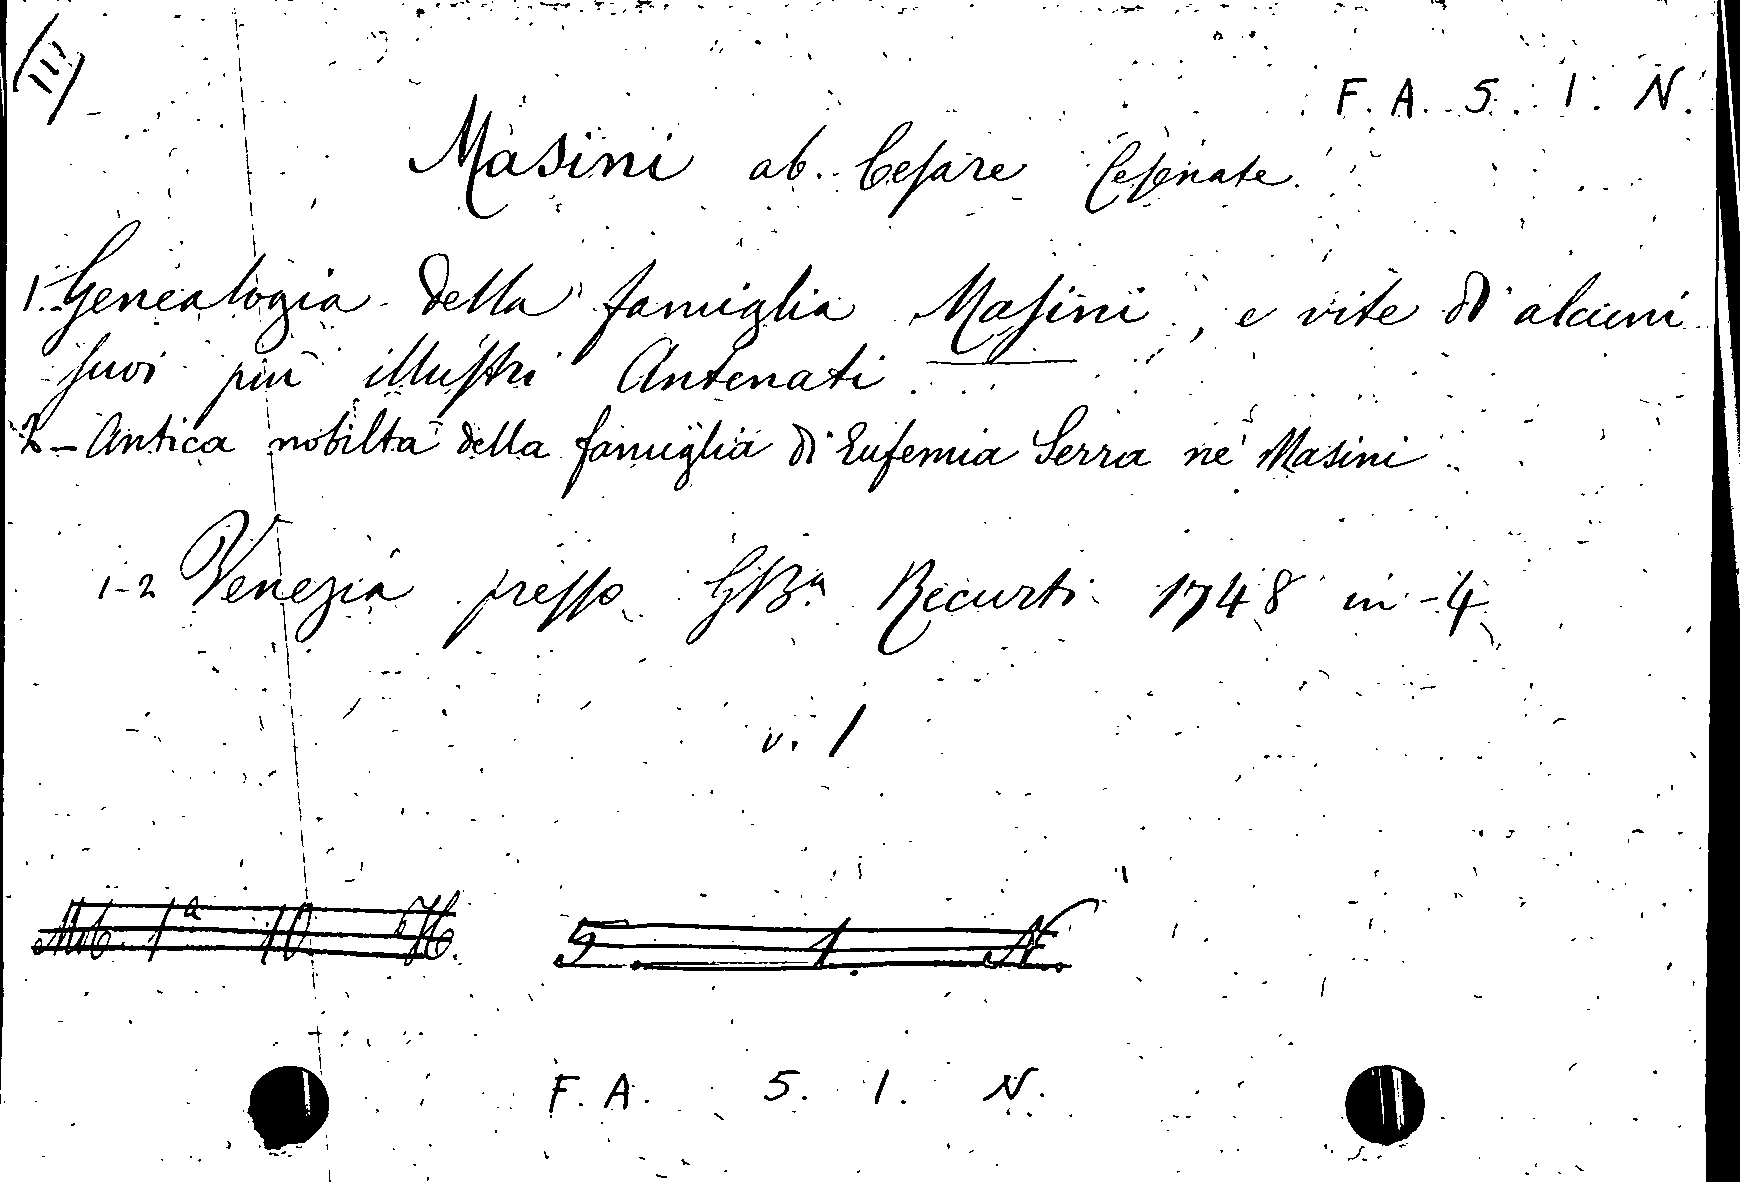 III)
F. A. 5. 1. N.
Masini ab. Cesare Cesenate.
1. Genealogia della famiglia Masini, e vite di alcuni
suoi più illustri Antenati
2 - Antica nobiltà della famiglia di Eufemia Serra né Masini
1-2 Venezia presso GBa Recurti 1748 in-4
v. 1
1a 10 5. 1. N.
F. A. 5. 1. N.